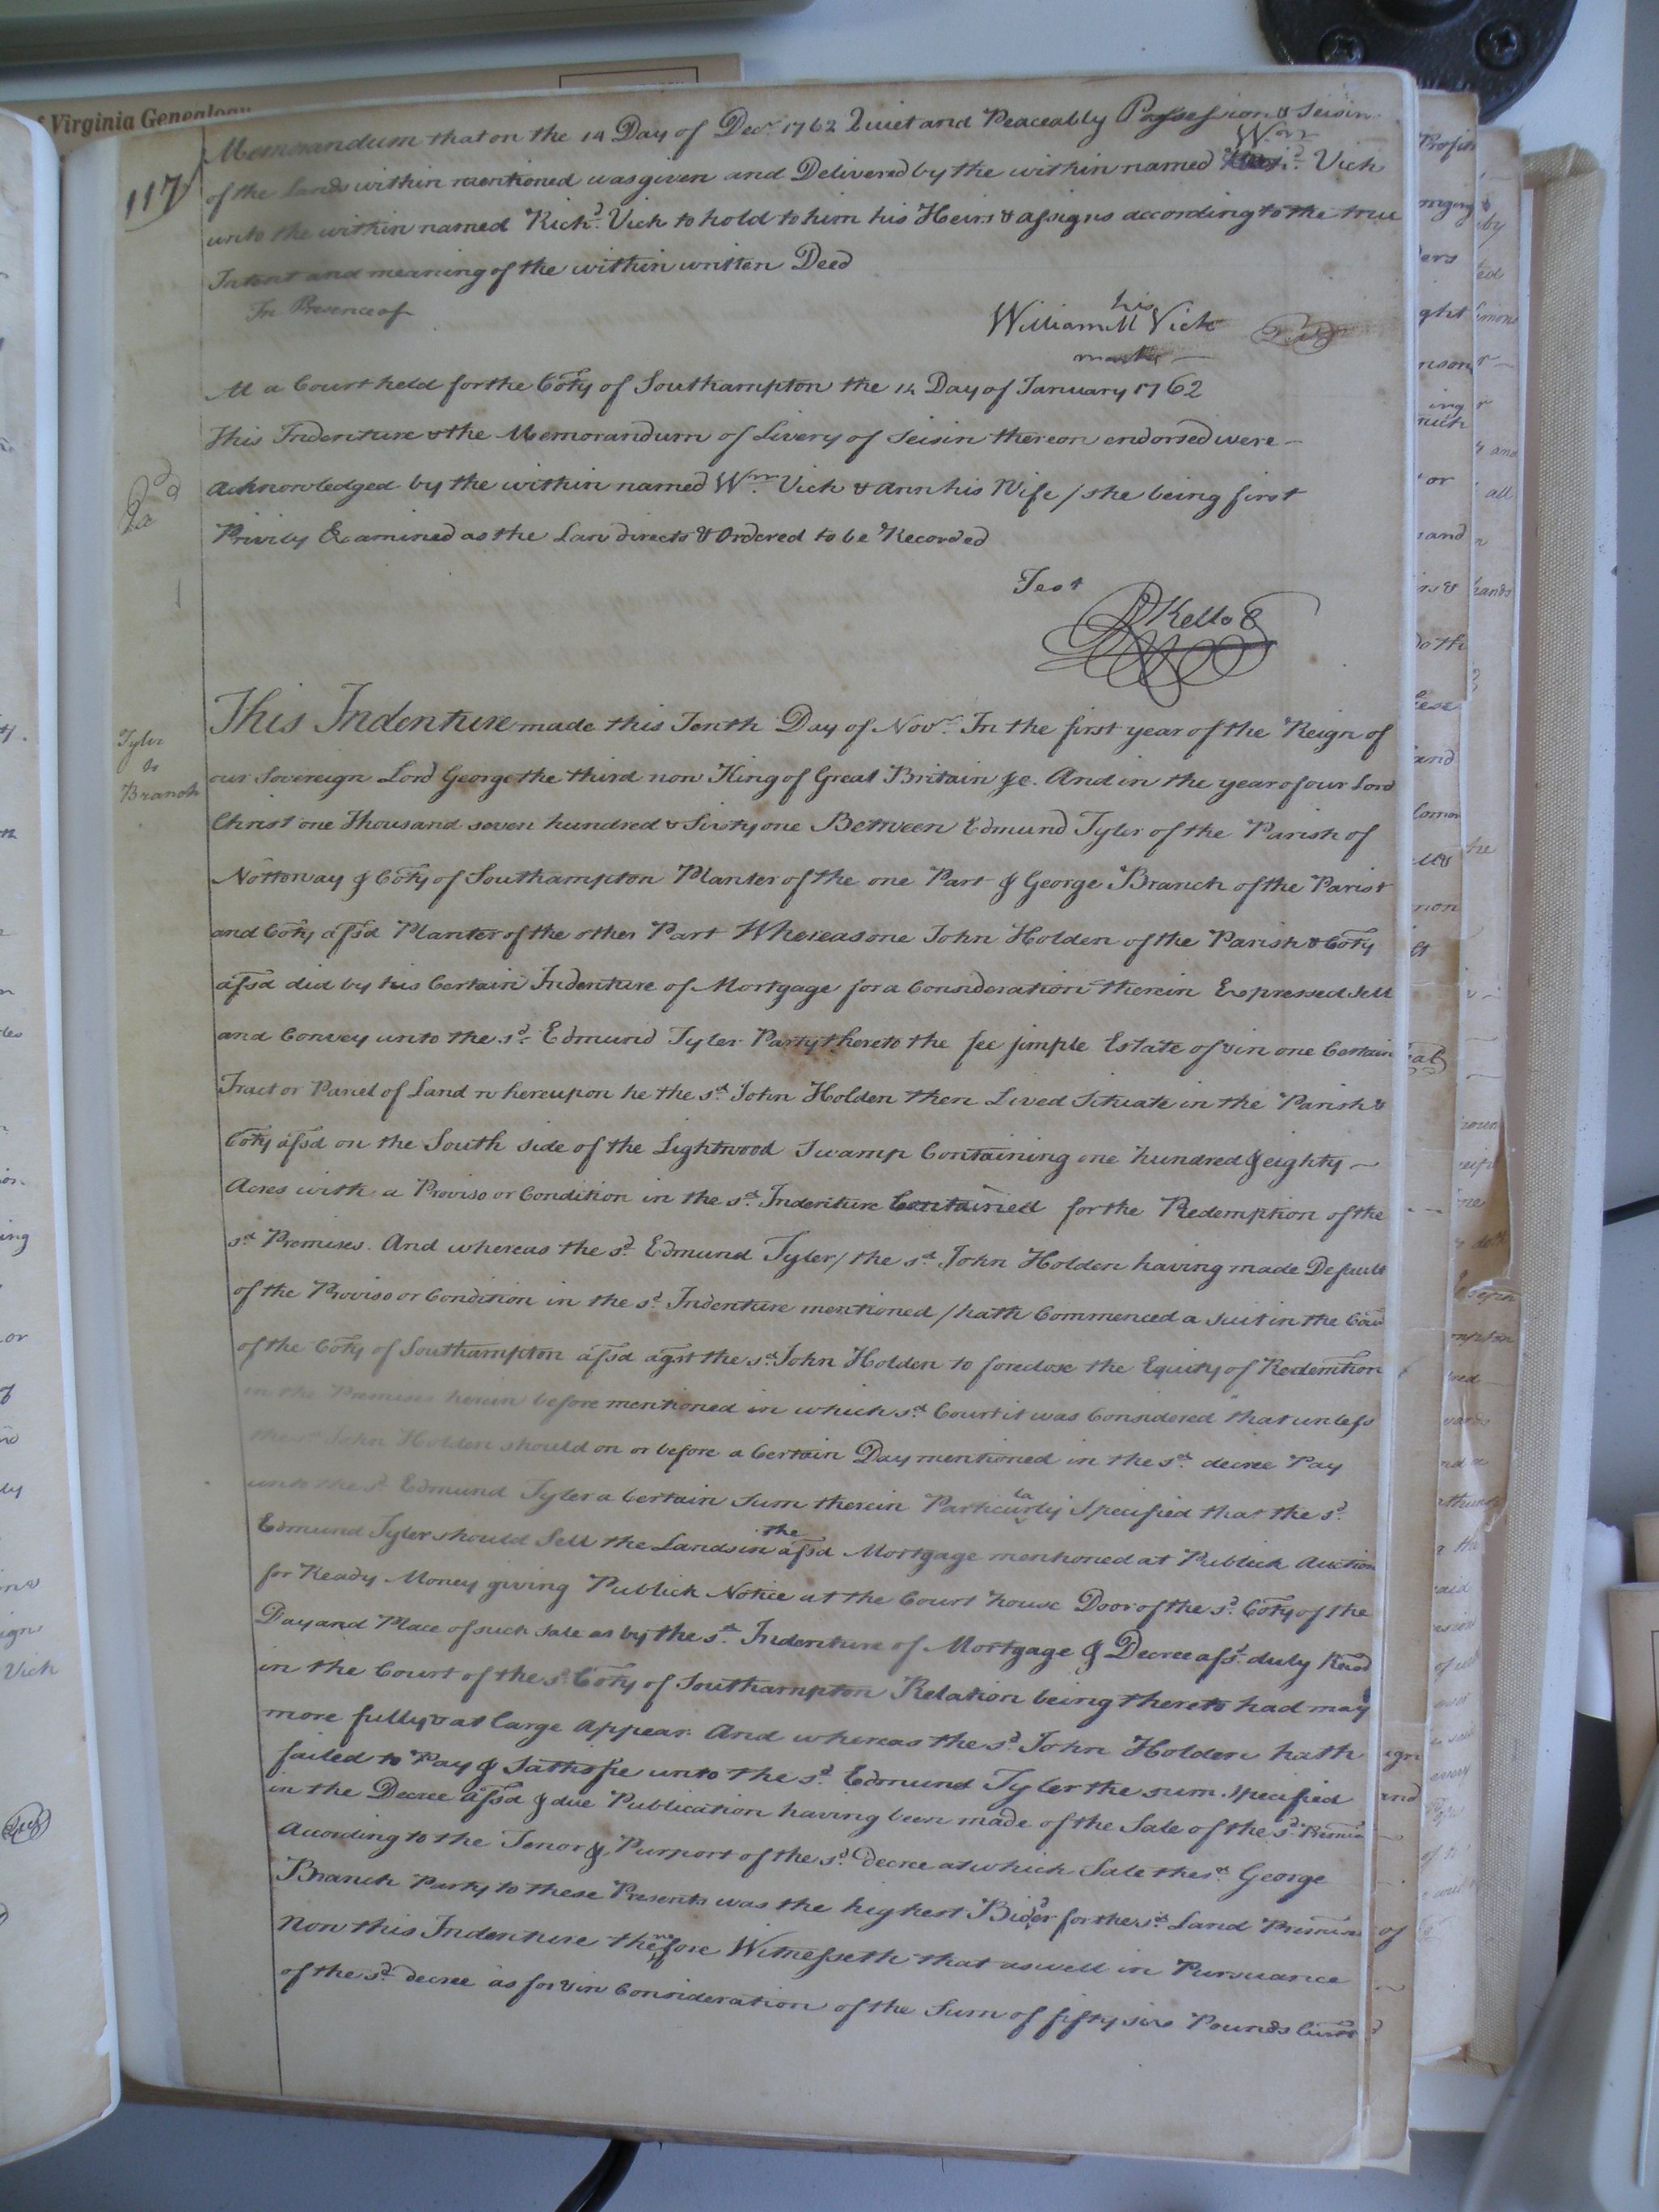 Virginia Genealogy
117
Memorandum that on the 14 Day of Decr 1762 Quiet and Peaceably Possession & Seisin
of the Lands within mentioned was given and Delivered by the within named Wm Vick
unto the within named Richd Vick to hold to him his Heirs & assigns according to the true
Intent and meaning of the within written Deed
In Presence of
his
William M Vick
mark
At a Court held for the Coty of Southampton the 14 Day of January 1762
This Indenture & the Memorandum of Livery of Seisin thereon endorsed were
Acknowledged by the within named Wm Vick & Ann his Wife / she being first
Privily Examined as the Law directs & Ordered to be Recorded
Test
R Kello C
Tyler
to
Branch
This Indenture made this Tenth Day of Novr In the first year of the Reign of
our Sovereign Lord George the third now King of Great Britain &c. And in the year of our Lord
Christ one Thousand seven hundred & Sixty one Between Edmund Tyler of the Parish of
Nottoway & Coty of Southampton Planter of the one Part & George Branch of the Parish
and Coty afsd Planter of the other Part Whereas one John Holden of the Parish & Coty
afsd did by his Certain Indenture of Mortgage for a Consideration therein Expressed Sell
and Convey unto the sd Edmund Tyler Party thereto the fee simple Estate of & in one Certain
Tract or Parcel of Land whereupon he the sd John Holden then Lived Situate in the Parish &
Coty afsd on the South side of the Lightwood Swamp Containing one hundred & eighty
Acres with a Proviso or Condition in the sd Indenture Contained for the Redemption of the
sd Premises. And whereas the sd Edmund Tyler / the sd John Holden having made Default
of the Proviso or Condition in the sd Indenture mentioned / hath Commenced a Suit in the Cou
of the Coty of Southampton afsd agst the sd John Holden to foreclose the Equity of Redemtion
in the Premises herein before mentioned in which sd Court it was Considered that unless
the sd John Holden should on or before a Certain Day mentioned in the sd decree Pay
unto the sd Edmund Tyler a Certain Sum therein Particularly Specified that the sd
Edmund Tyler should Sell the Lands in the afsd Mortgage mentioned at Publick Auction
for Ready Money giving Publick Notice at the Court house Door of the sd Coty of the
Day and Place of such Sale as by the sd Indenture of Mortgage & Decree afsd duly Recd
in the Court of the sd Coty of Southampton Relation being thereto had may
more fully & at large Appear. And whereas the sd John Holden hath
failed to Pay & Sathisfie unto the sd Edmund Tyler the sum Specified
in the Decree afsd & due Publication having been made of the Sale of the sd Premis
According to the Tenor & Purport of the sd decree at which Sale the sd George
Branch Party to these Presents was the highest Bidder for the sd Land Premises
Now this Indenture therefore Witnesseth that as well in Pursuance
of the sd decree as for & in Consideration of the Sum of fifty six Pounds Curt